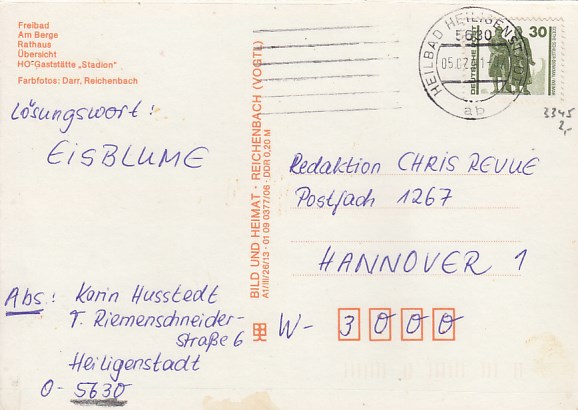 Freibad
Am Berge
Rathaus
Übersicht
HO-Gaststätte „Stadion“
Farbfotos: Darr, Reichenbach
Lösungswort:
EISBLUME
Abs: Karin Husstedt
T. Riemenschneider-
straße 6
Heiligenstadt
O- 5630
BILD UND HEIMAT · REICHENBACH (VOGTL)
A1/III/26/13 · 01 09 0377/06 · DDR 0,20 M
HEILBAD HEILIGENSTADT
5630
05.02.
ab
30
DEUTSCHE POST
3345
2,-
Redaktion CHRIS REVUE
Postfach 1267
HANNOVER 1
W- 3000